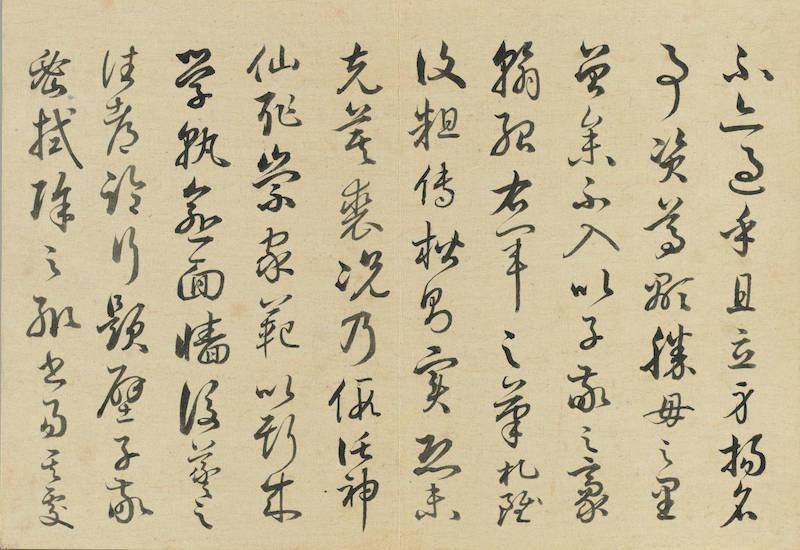 不亦過乎且立身揚名
事資尊顯勝母之里
曾參不入以子敬之豪
翰紹右軍之筆札雖
復粗傳楷則實恐未
克箕裘況乃假託神
仙耻崇家範以斯成
學孰愈面牆後羲之
往都臨行題壁子敬
密拭除之輒書易其處